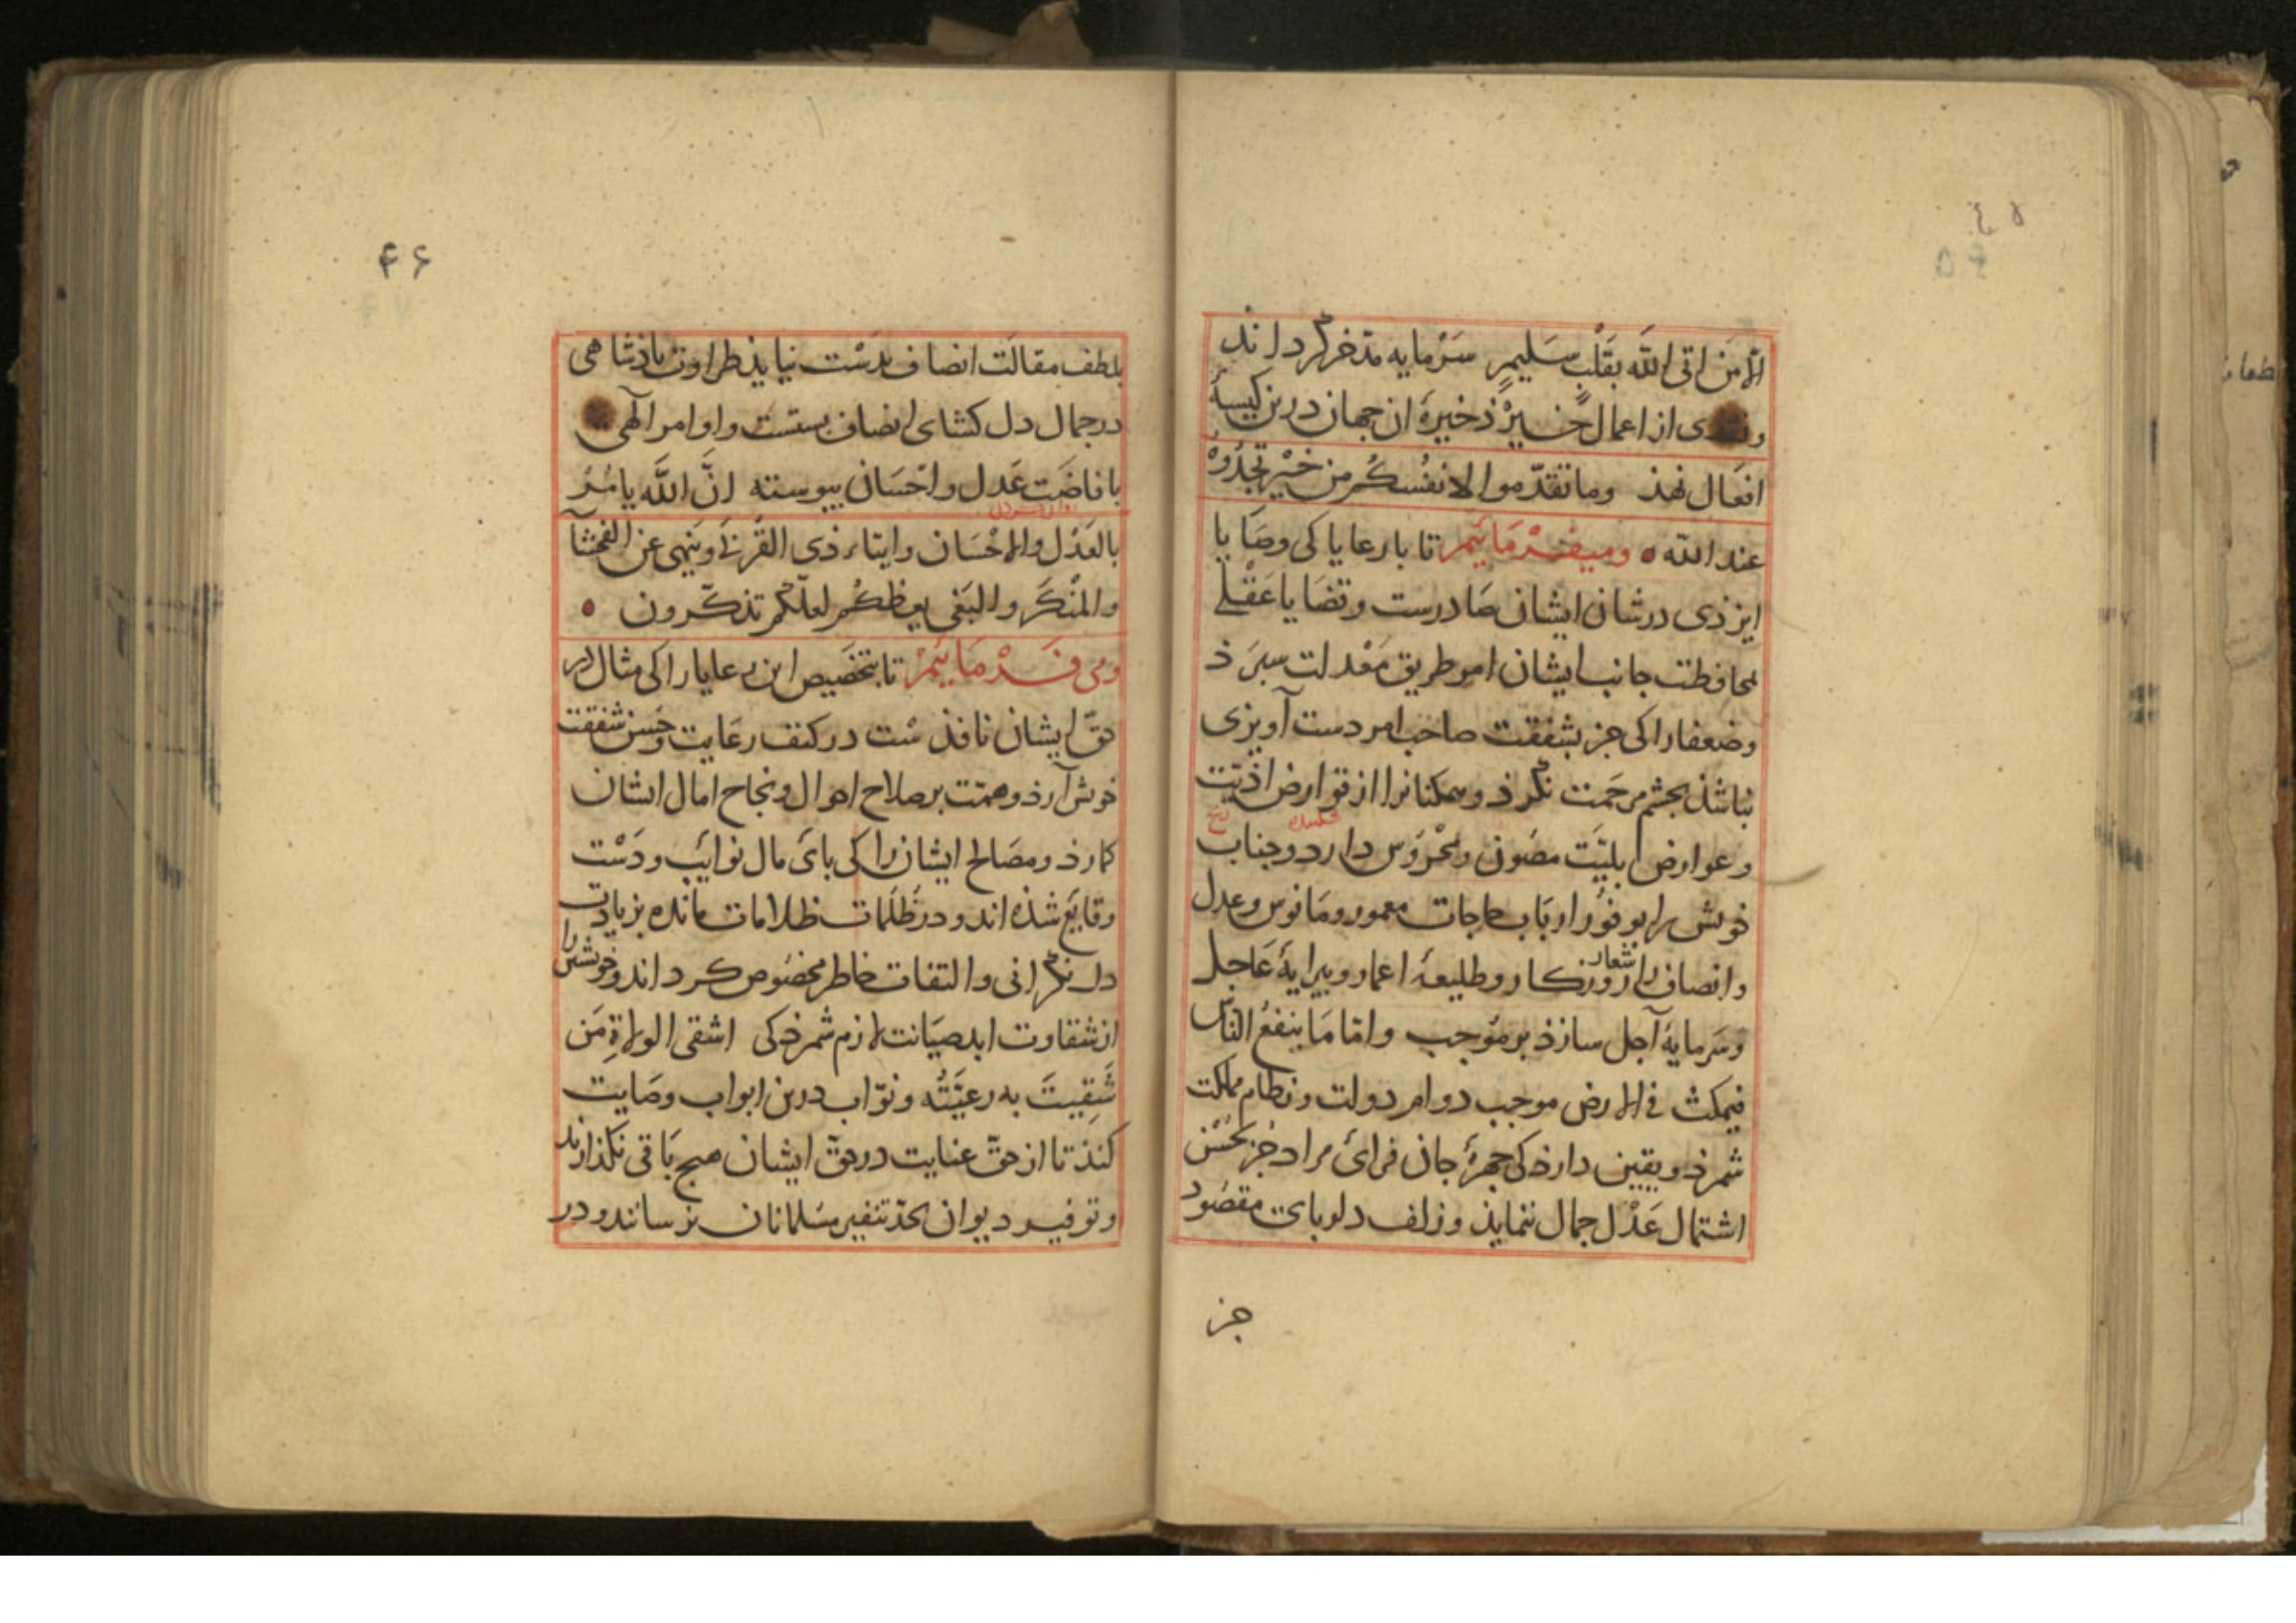 ۴۵
الا من اتی الله بقلب سلیم سرمایه مدّخر کرداند
و از اعمال خیر ذخیرهٔ ان جهان درین کیسهٔ
افعال نهذ وما تقدّموا لانفسكم من خیر تجدوه
عند الله ٥ ومیفرماییم تا با رعایا کی وصایا
ایزذی درشان ایشان صادرست وقضایا عقلی
محافظت جانب ایشان امر طریق معدلت سپرذ
وضعفا را کی جز بشفقت صاحب امر دست آویزی
نباشذ بچشم مرحمت نکرذ و مسکنانرا از قوارض اذیّت
وعوارض بلیّت مصون ومحروس دارد وجناب
خویش را بوفور ارباب حاجات معمور ومانوس وعدل
وانصاف را شعار روزکار وطلیعهٔ اعمار وپیرایهٔ عاجل
وسرمایهٔ آجل سازذ بر موجب واما ما ینفع الناس
فیمکث فی الارض موجب دوام دولت ونظام مملکت
شمرذ ویقین دارذ کی چهرهٔ جان فزائ مراد جز بحسن
اشتمال عدل جمال ننمایذ وزلف دلربای مقصود
جز
۴۶
بلطف مقالت انصاف بدست نیایذ طراوت باذشاهی
درجمال دل کشای انصاف بستست واوامر آلهی
بافاضت عدل واحسان بیوسته انّ الله یامر
بالعدل والاحسان وایتاء ذی القربی وینهی عن الفحشآ
والمنکر والبغی یعظکم لعلّکم تذکّرون ٥
ومی فرماییم تا بتخصیص این رعایا را کی مثال در
حقّ ایشان نافذ شت در کنف رعایت وحسن شفقت
خویش آرذ وهمّت بر صلاح احوال ونجاح امال ایشان
کمارذ ومصالح ایشان را کی بائ مال نوایب ودست
وقایع شذه اند ودر ظلمات ظلامات مانده بزیادت
دل نکرانی والتفات خاطر مخصوص کرداند وخویشتن را
از شقاوت ابد صیانت لازم شمرذ کی اشقی الولاة من
شقیت به رعیّته ونوّاب درین ابواب وصایت
کنذ تا از حقّ عنایت در حقّ ایشان هیج باقی نکذارند
وتوفیر دیوان بحدّ تنفیر مسلمانان نرسانند ودر